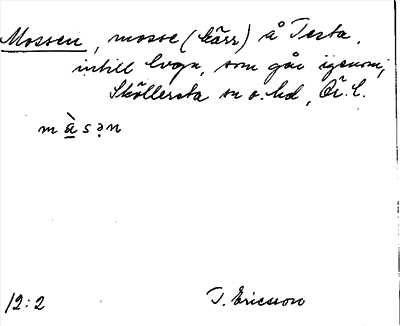 Mossen, mosse (kärr) å Testa,
intill Evan, som går igenom;
Sköllersta sn o. hd, Ör. l.
m à s ə n
12:2 T. Ericsson